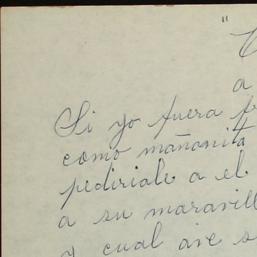 "
a
Si yo fuera
como mañanita
pediriale a el
a su maravill
y cual ave s